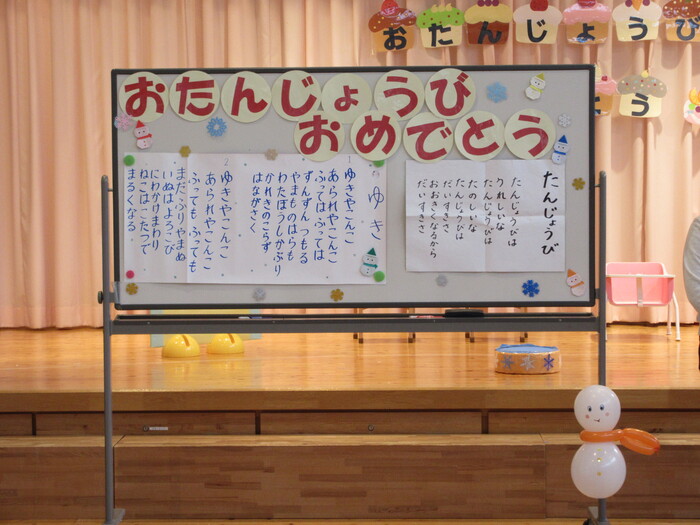 おたんじょうび
おたんじょうび
おめでとう
よう
ゆき
一
ゆきやこんこ
あられやこんこ
ふってはふっては
ずんずんつもる
やまものはらも
わたぼうしかぶり
かれきのこらず
はながさく
二
ゆきやこんこ
あられやこんこ
ふっても ふっても
まだふりやまぬ
いぬはよろこび
にわかけまわり
ねこはこたつで
まるくなる
たんじょうび
たんじょうびは
うれしいな
たんじょうびは
たのしいな
たんじょうびは
だいすきさ
おおきくなるから
だいすきさ